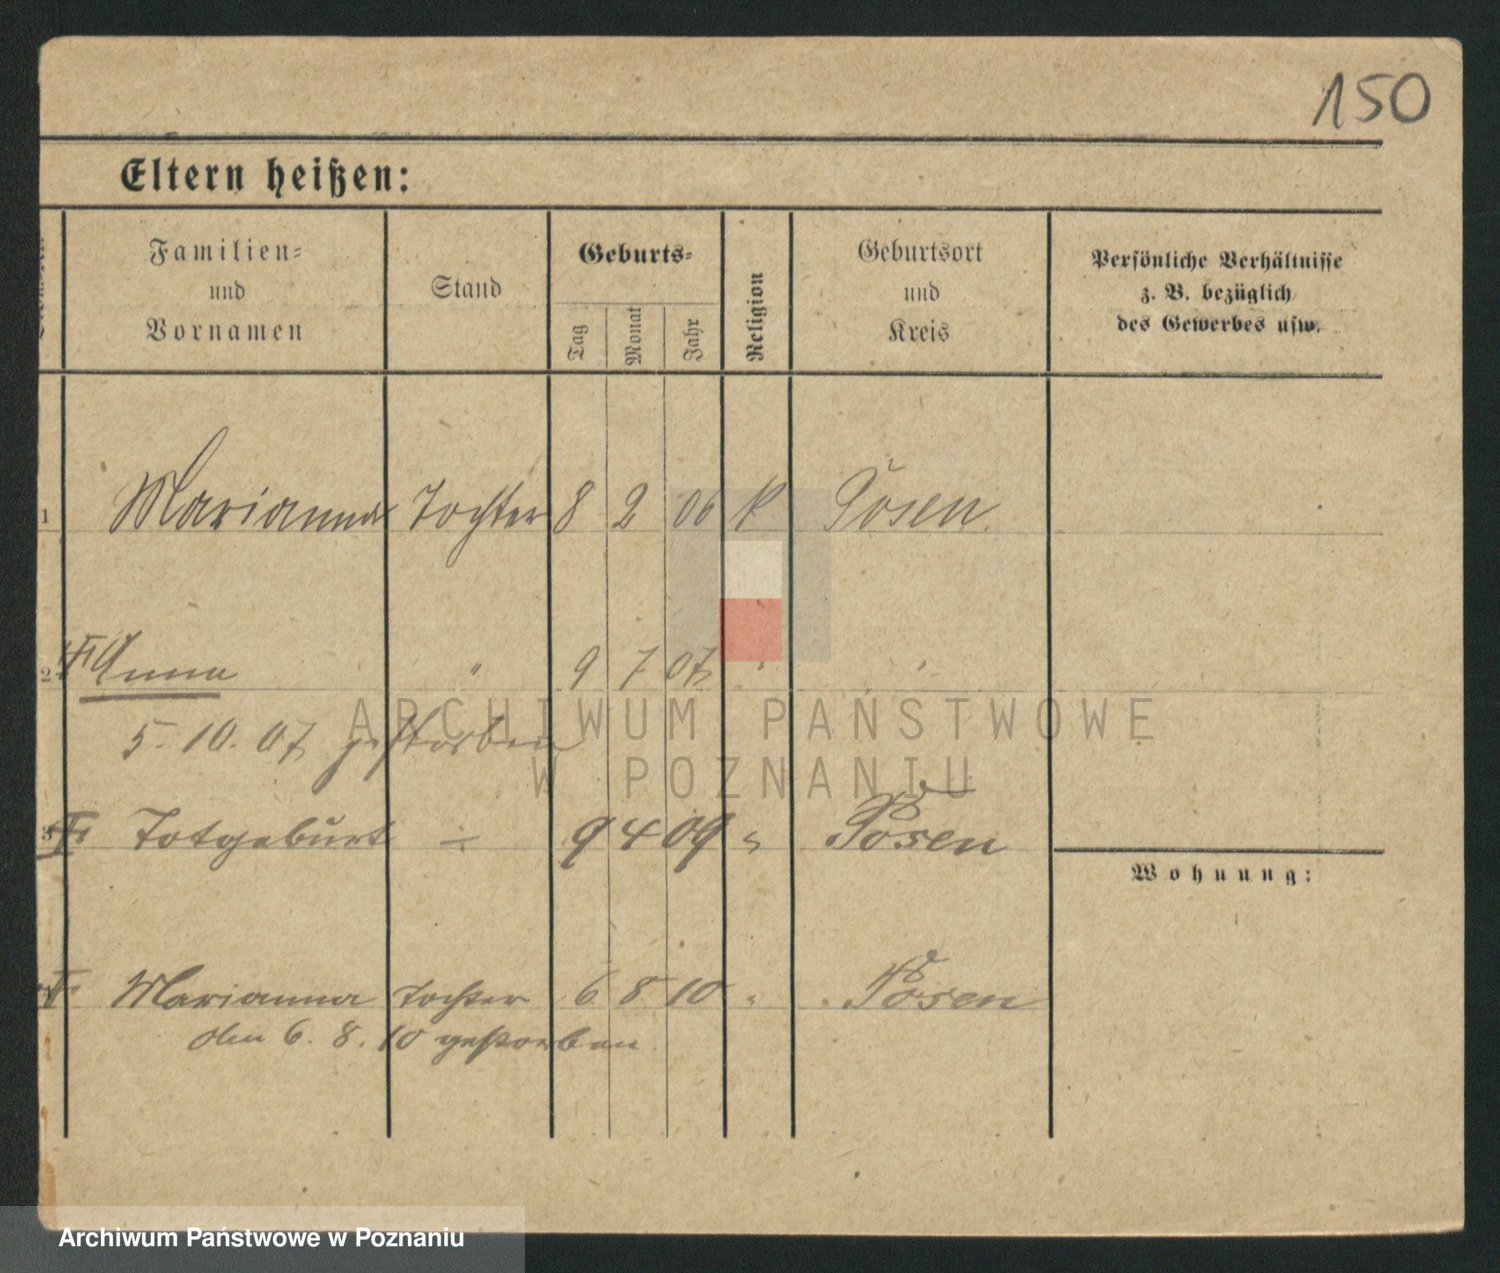 150
Eltern heißen:
Familien-
und
Vornamen
Stand
Geburts-
Tag
Monat
Jahr
Religion
Geburtsort
und
Kreis
Persönliche Verhältnisse
z. B. bezüglich
des Gewerbes usw.
1 Marianna Tochter 8 2 06 k Posen
2 Anna " 9 7 07 "
5. 10. 07 gestorben
3 Totgeburt ÷ 9 4 09 " Posen
Wohnung:
Marianna Tochter 6 8 10 " Posen
den 6. 8. 10 gestorben
ARCHIWUM PAŃSTWOWE
W POZNANIU
Archiwum Państwowe w Poznaniu